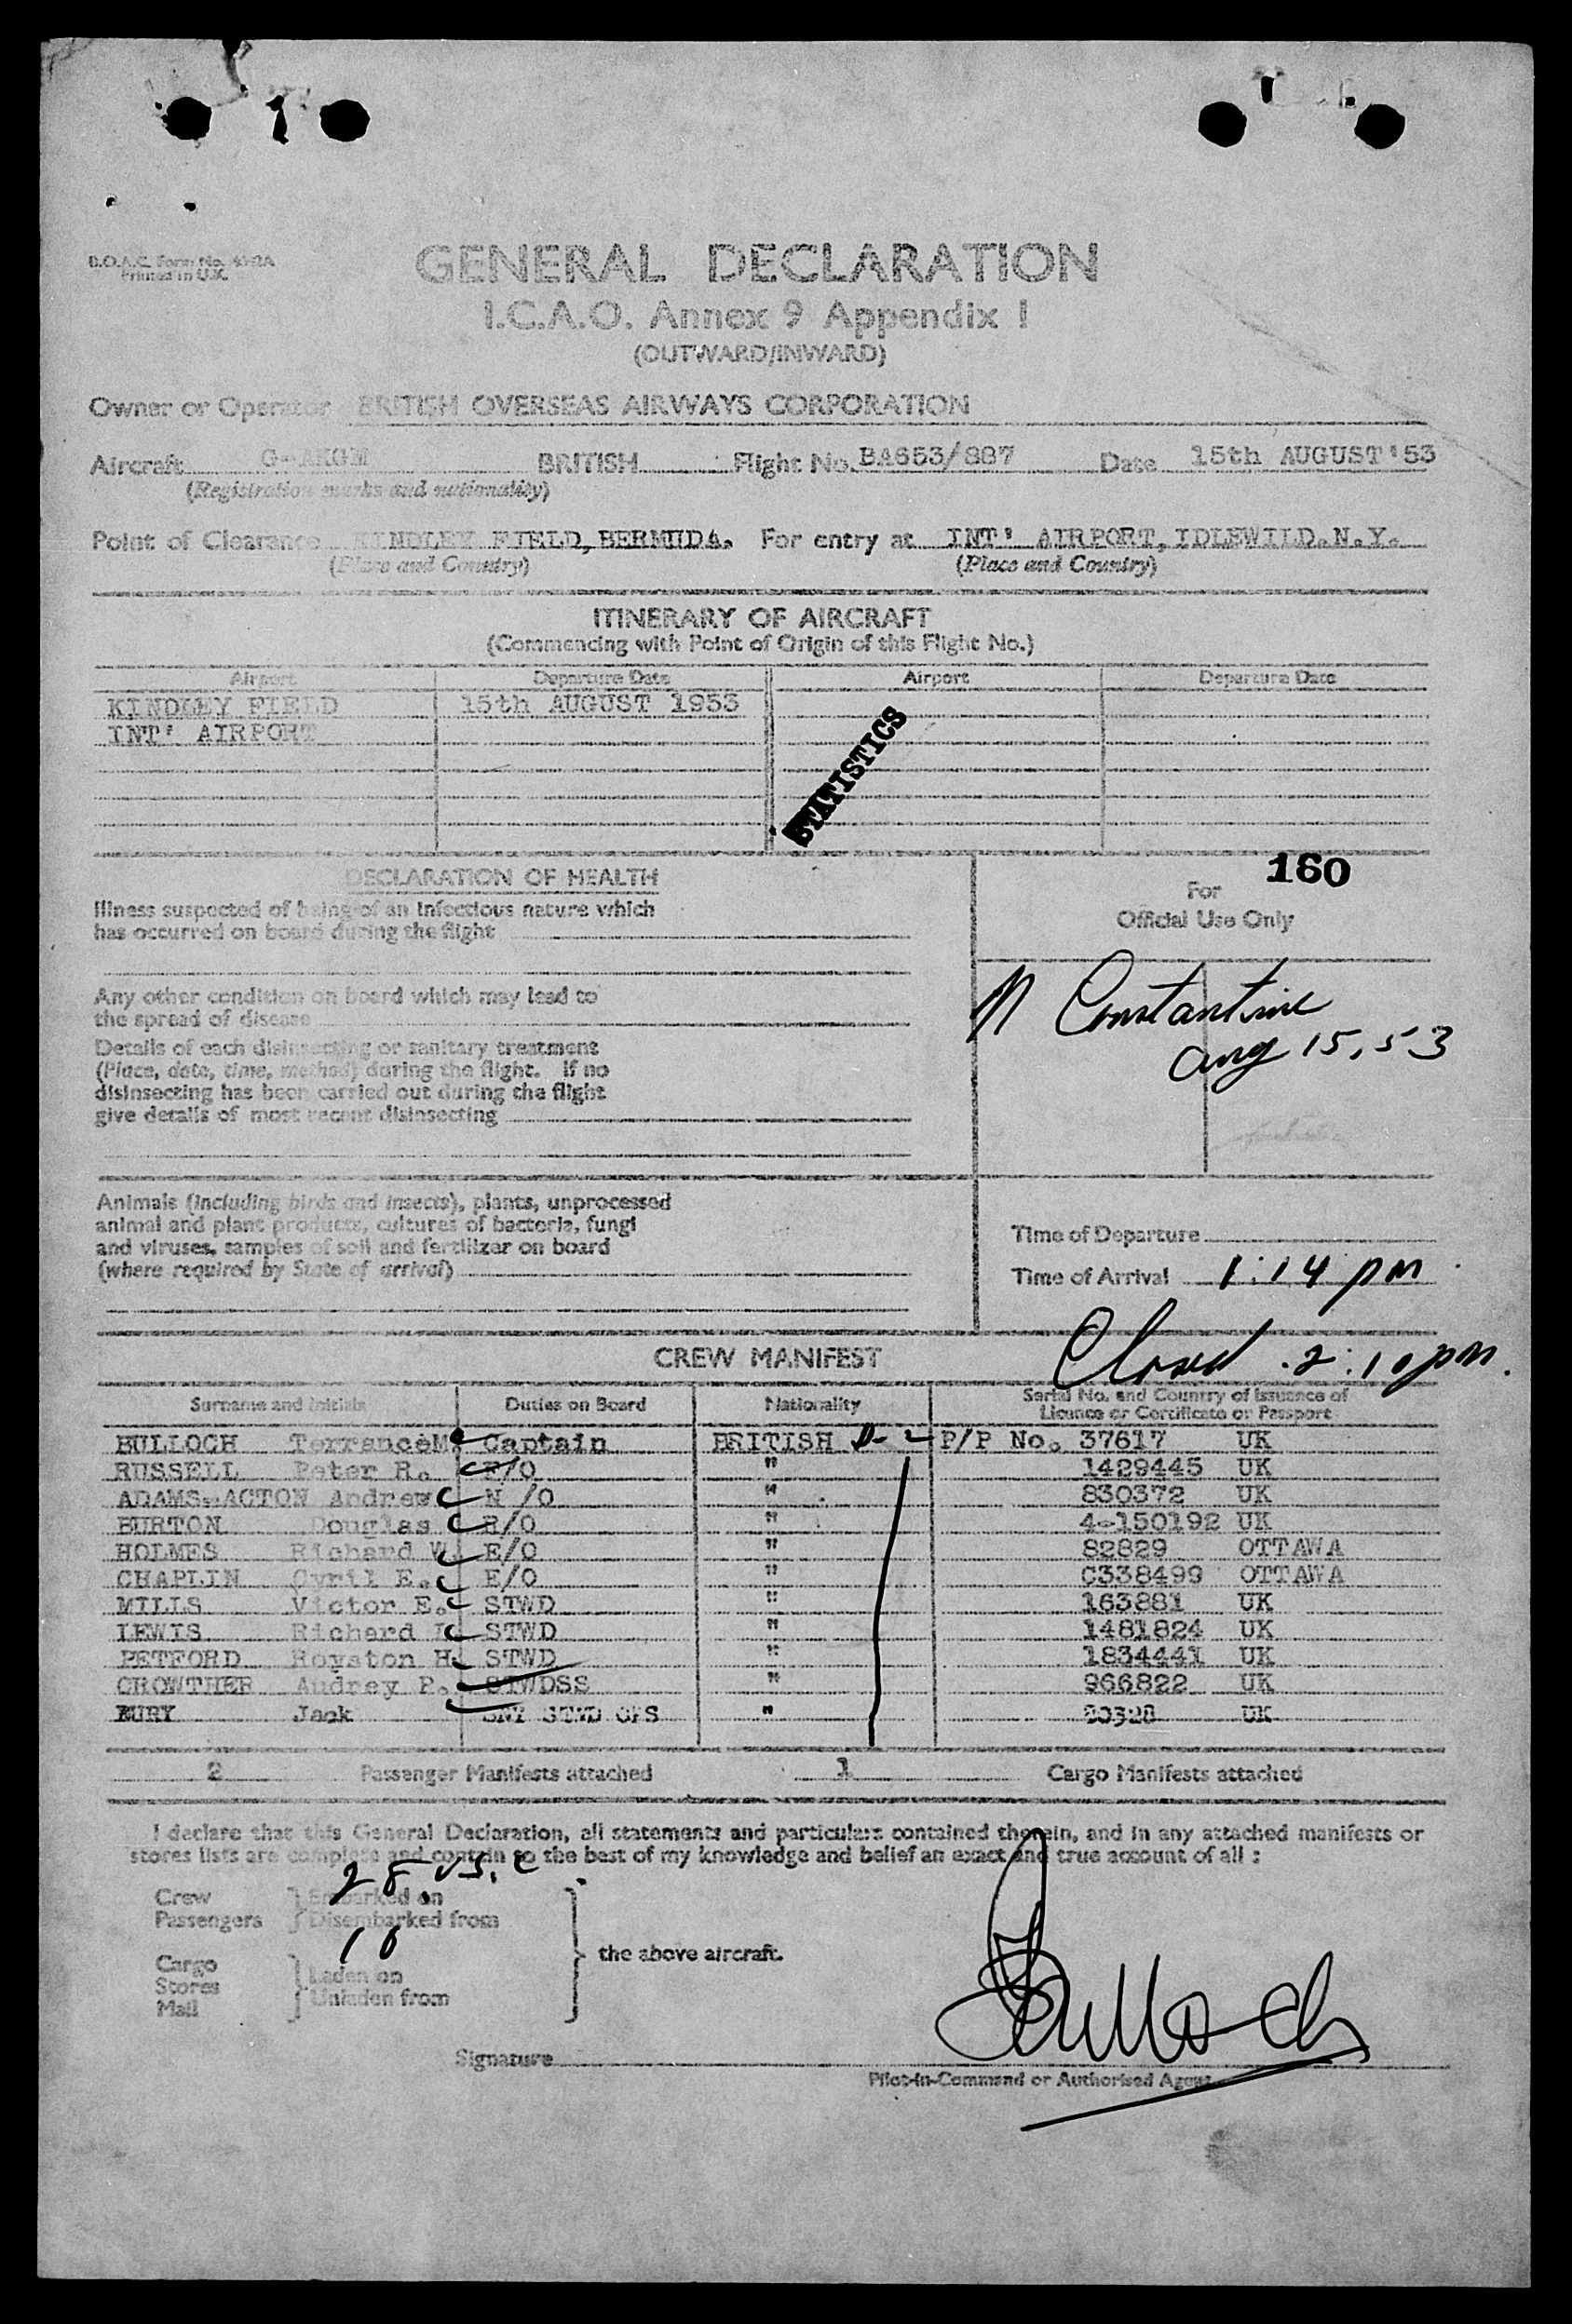 B.O.A.C. Form No.
Printed in U.K.
GENERAL DECLARATION
I.C.A.O. Annex 9 Appendix 1
(OUTWARD/INWARD)
Owner or Operator BRITISH OVERSEAS AIRWAYS CORPORATION
Aircraft G-AKGM BRITISH Flight No. BA653/887 Date 15th AUGUST'53
(Registration marks and nationality)
Point of Clearance KINDLEY FIELD, BERMUDA. For entry at INT' AIRPORT, IDLEWILD.N.Y.
(Place and Country) (Place and Country)
ITINERARY OF AIRCRAFT
(Commencing with Point of Origin of this Flight No.)
Airport Departure Date Airport Departure Date
KINDLEY FIELD 15th AUGUST 1953
INT' AIRPORT
STATISTICS
160
DECLARATION OF HEALTH
For
Official Use Only
Illness suspected of being of an infectious nature which
has occurred on board during the flight
Any other condition on board which may lead to
the spread of disease
N Constantine
Aug 15, 53
Details of each disinsecting or sanitary treatment
(Place, date, time, method) during the flight. If no
disinsecting has been carried out during the flight
give details of most recent disinsecting
Animals (including birds and insects), plants, unprocessed
animal and plant products, cultures of bacteria, fungi
and viruses, samples of soil and fertilizer on board
(where required by State of arrival)
Time of Departure
Time of Arrival 1:14 pm
Closed 2:10 pm.
CREW MANIFEST
Surname and Initials Duties on Board Nationality Serial No. and Country of Issuance of
Licence or Certificate or Passport
BULLOCH Terrance M. Captain BRITISH D-2 P/P No. 37617 UK
RUSSELL Peter R. F/O " 1429445 UK
ADAMS-ACTON Andrew N/O " 830372 UK
BURTON Douglas R/O " 4-150192 UK
HOLMES Richard W. E/O " 82829 OTTAWA
CHAPLIN Cyril E. E/O " C338499 OTTAWA
MILLS Victor E. STWD " 163881 UK
LEWIS Richard STWD " 1481824 UK
PETFORD Royston H. STWD " 1834441 UK
CROWTHER Audrey P. STWDSS " 966822 UK
BURY Jack SNY STWD OFS " 80328 UK
2 Passenger Manifests attached 1 Cargo Manifests attached
I declare that this General Declaration, all statements and particulars contained therein, and in any attached manifests or
stores lists are complete and contain to the best of my knowledge and belief an exact and true account of all :
28 US. C
Crew Embarked on
Passengers Disembarked from
10
the above aircraft.
Cargo
Stores Laden on
Mail Unladen from
Bulloch
Signature
Pilot-in-Command or Authorised Agent